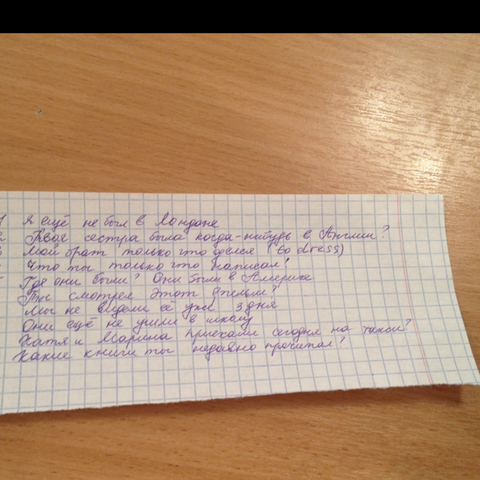 1 Я ещё не был в Лондоне
2 Твоя сестра была когда-нибудь в Англии?
3 Мой брат только что оделся (to dress)
Что ты только что написал?
Где они были? Они были в Америке
Ты смотрел этот фильм?
Мы не видели её уже 3 дня
Они ещё не ушли в школу
Катя и Марина приехали сегодня на такси?
Какие книги ты недавно прочитал?